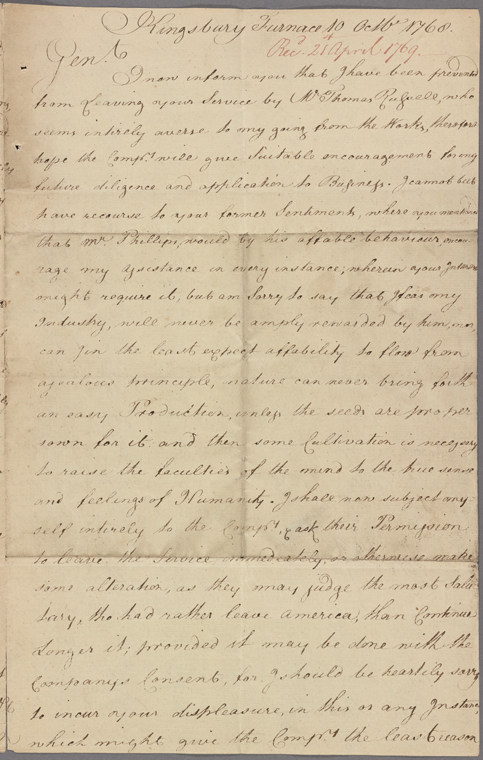 Kingsbury Furnace 10 Octbr 1768.
Recd. 21 April 1769.
Gent.
I now inform you that I have been prevented
from leaving your Service by Mr. Thomas Russell, who
seems intirely averse to my going from the Works, therefore
hope the Compy. will give Suitable encouragement for my
future diligence and application to Business. I cannot but
have recourse to your former Sentiments, where you mention
that Mr. Phillips, would by his affable behaviour encou
rage my assistance in every instance, wherein your Interest
might require it, but am Sorry to say that I fear my
Industry, will never be amply rewarded by him, nor
can I in the least expect affability to flow from
a jealous principle, nature can never bring forth
an easy Production, unless the seeds are proper
sown for it. and then some Cultivation is necessary
to raise the faculties of the mind to the true sense
and feelings of Humanity. I shall now subject my
self intirely to the Compy. & ask their Permission
to leave the Service immediately, or otherwise make
some alteration, as they may judge the most Salu
tary, tho had rather leave America, than Continue
Longer it; provided it may be done with the
Companys Consent, for I should be heartily sorry
to incur your displeasure, in this or any Instance
which might give the Compy. the least reason